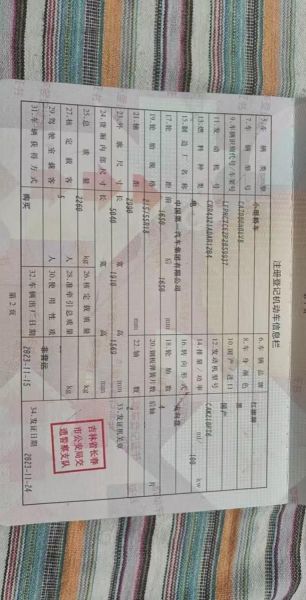 注册登记机动车信息栏
5.车辆类型 小型轿车 6.车辆品牌 红旗牌
7.车辆型号 8.车身颜色 黑
9.车辆识别代号/车架号 10.国产/进口 国产
11.发动机号 12.发动机型号
13.燃料种类 电 14.排量/功率 ml/ 100 kw
15.制造厂名称 中国第一汽车集团有限公司 16.转向形式 方向盘
17.轮距 前 1650 后 1650 mm 18.轮胎数 4
19.轮胎规格 215/55R18 20.钢板弹簧片数 后轴 片
21.轴距 2990 mm 22.轴数 2
23.外廓尺寸 长 5040 宽 1910 高 mm 33.发证机关章
24.货厢内部尺寸 长 宽 高 mm
25.总质量 2260 kg 26.核定载质量 kg
27.核定载客 5 人 28.准牵引总质量 kg
29.驾驶室载客 人 30.使用性质 非营运
31.车辆获得方式 购买 32.车辆出厂日期 2023-11-15 34.发证日期 2023-11-24
吉林省长春
市公安局交
通警察支队
第2页